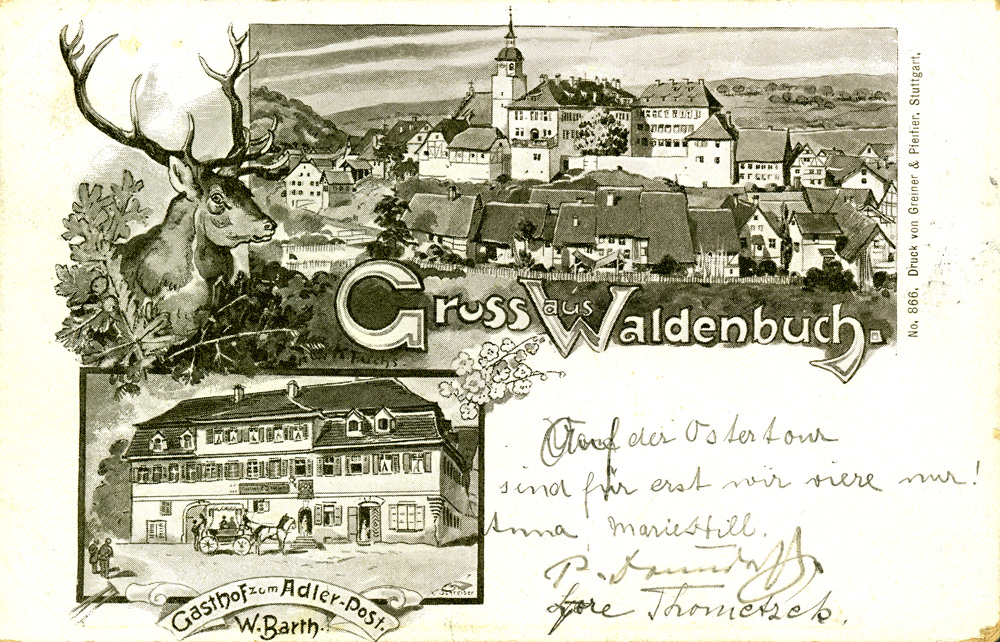 Gruss aus Waldenbuch.
No. 866. Druck von Greiner & Pfeiffer, Stuttgart.
Gasthof zum Adler-Post.
W. Barth.
Schreiber
Auf der Ostertour
sind für erst wir viere nur!
Anna Marie Hill.
P. Donndorf.
Lore